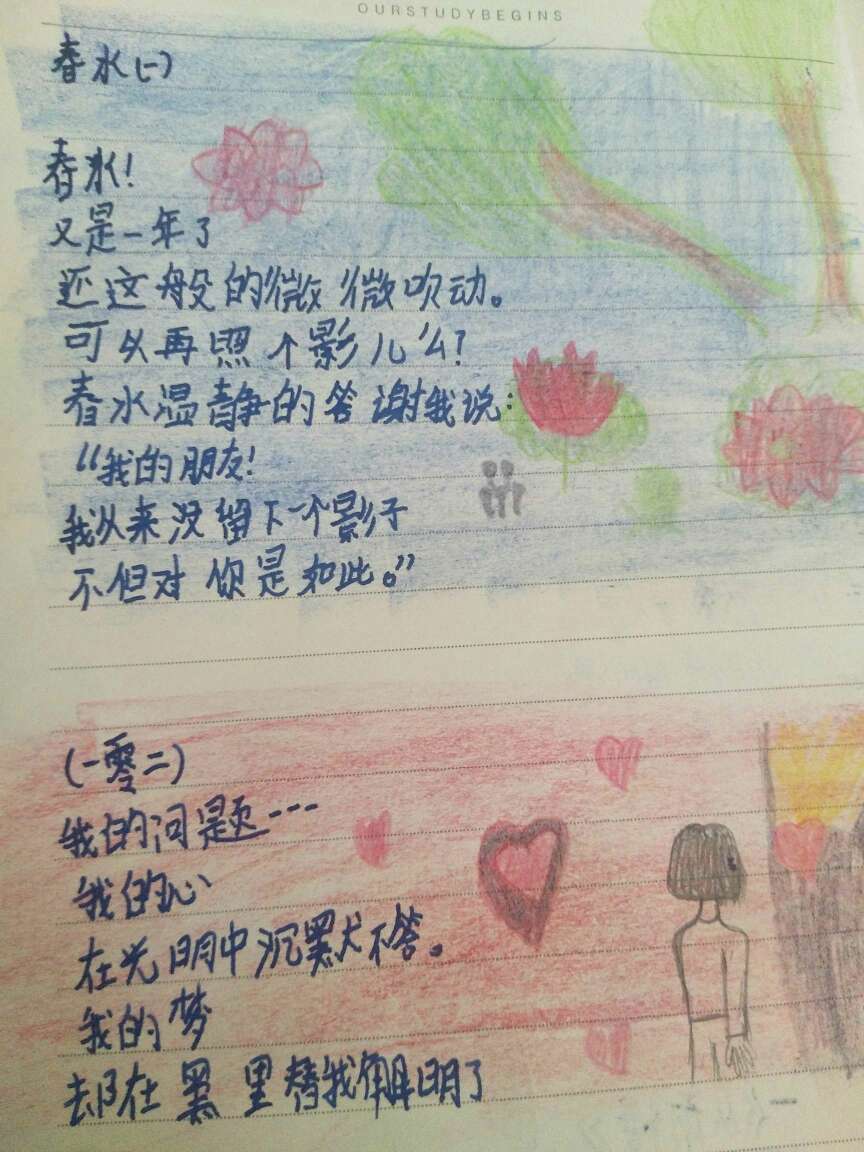 OURSTUDYBEGINS
春水(一)
春水!
又是一年了
还这般的微微吹动。
可以再照个影儿么?
春水温静的答谢我说:
“我的朋友!
我从来没留下一个影子
不但对你是如此。”
(一零二)
我的问题---
我的心
在光明中沉默不答。
我的梦
却在黑里替我解明了